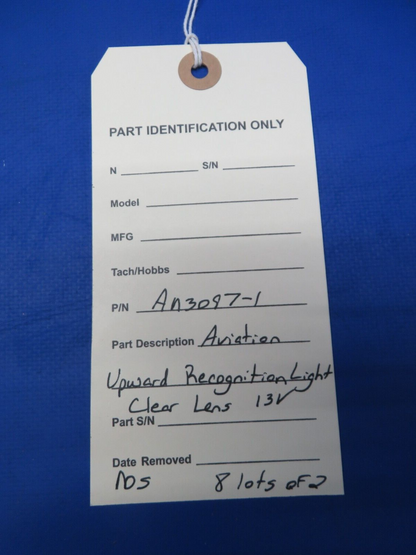 PART IDENTIFICATION ONLY
N S/N
Model
MFG
Tach/Hobbs
P/N An3097-1
Part Description Aviation
Upward Recognition Light
Clear Lens 13V
Part S/N
Date Removed
NOS 8 lots of 2